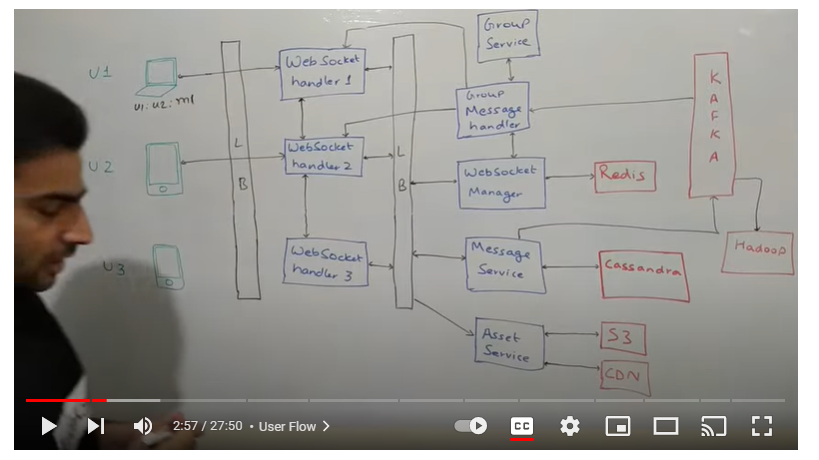 U1
U1: U2: m1
U2
U3
L
B
WebSocket
handler 1
WebSocket
handler 2
WebSocket
handler 3
L
B
Group
Service
Group
Message
handler
WebSocket
Manager
Redis
Message
Service
Cassandra
Asset
Service
S3
CDN
K
A
F
K
A
Hadoop
2:57 / 27:50 • User Flow
CC